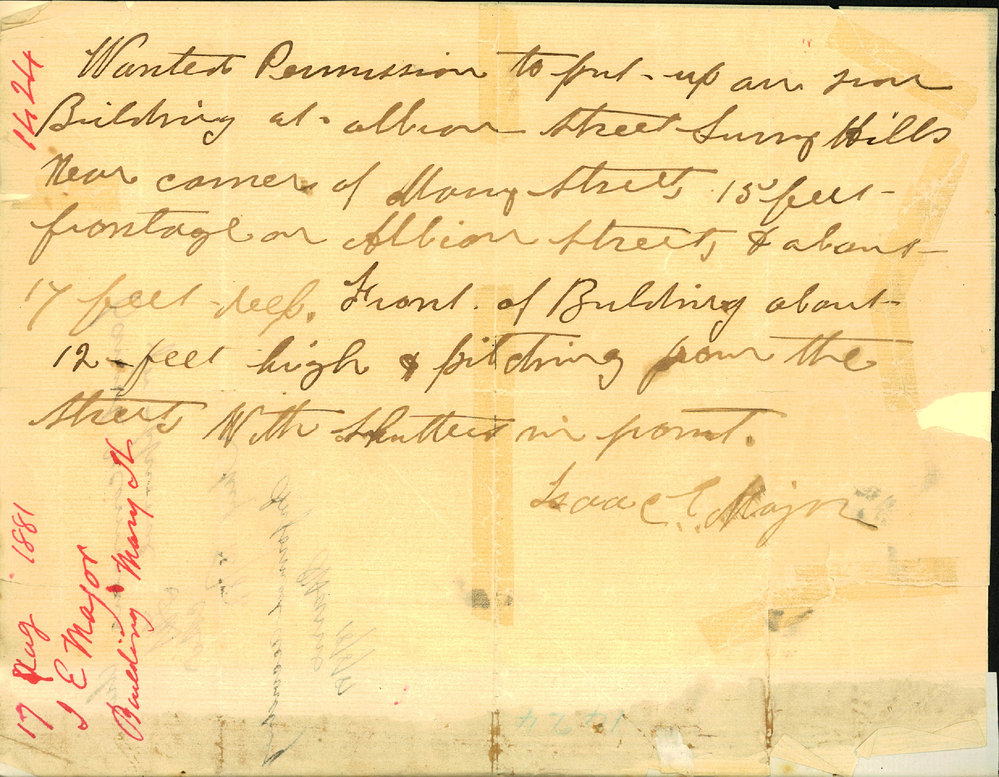 Wanted Permission to put-up an iron
Building at albion street Surry Hills
Near corner of Mary Street 15 feet
frontage on Albion Street & about
17 feet deep. Front of Building about
12 feet high & pitching from the
Street With Shutters in front.
Isaac E. Major
1424
17 Aug 1881
I E Major
Building Mary St
1424